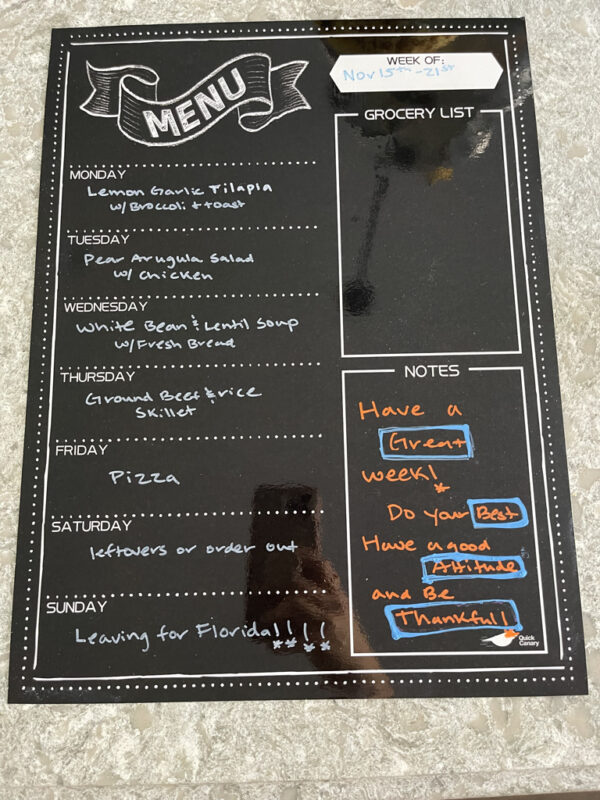 MENU
WEEK OF:
Nov 15th - 21st
MONDAY
Lemon Garlic Tilapia
w/ Broccoli + toast
TUESDAY
Pear Arugula Salad
w/ Chicken
WEDNESDAY
White Bean & Lentil Soup
w/ Fresh Bread
THURSDAY
Ground Beef & rice
Skillet
FRIDAY
Pizza
SATURDAY
leftovers or order out
SUNDAY
Leaving for Florida!!!!
GROCERY LIST
NOTES
Have a
Great
week!
Do your Best
Have a good
Attitude
and Be
Thankful!
Quick
Canary